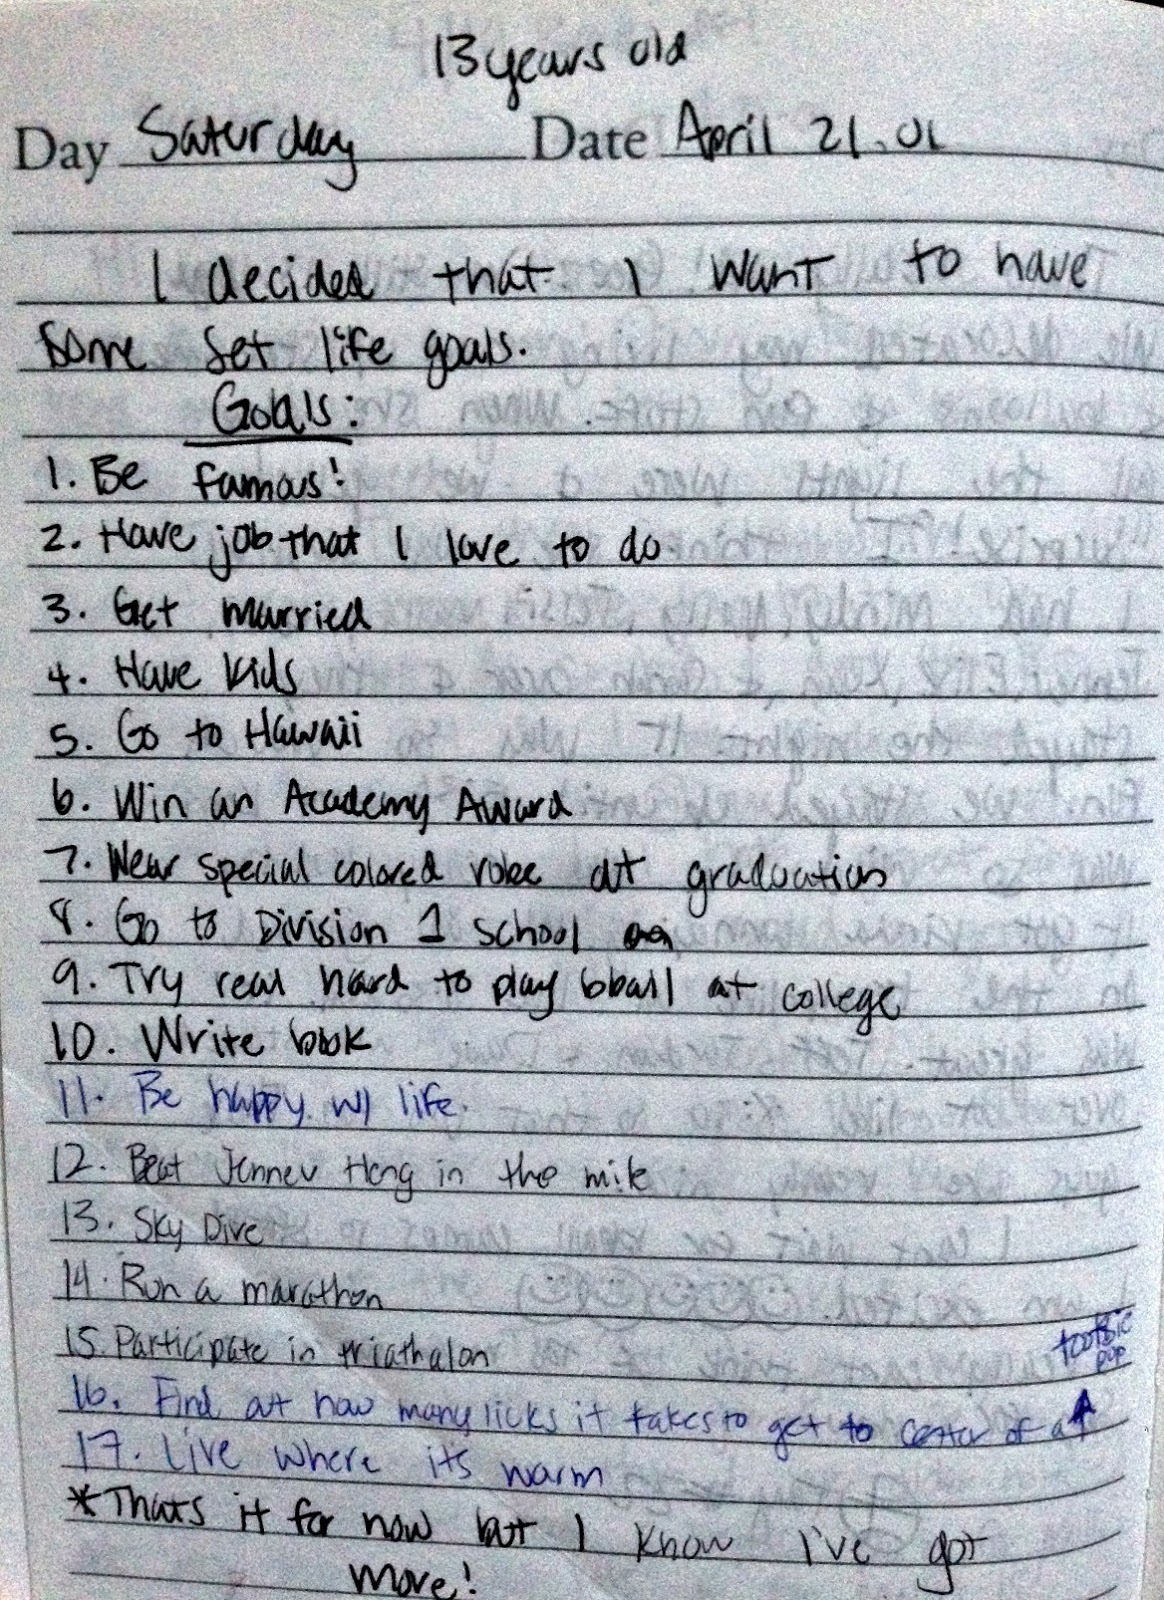 13 years old
Day Saturday Date April 21.01
I decided that I want to have
some set life goals.
Goals:
1. Be famous!
2. Have job that I love to do
3. Get married
4. Have kids
5. Go to Hawaii
6. Win an Academy Award
7. Wear special colored robe at graduation
8. Go to Division 1 school
9. Try real hard to play bball at college
10. Write book
11. Be happy w/ life.
12. Beat Heng in the mile
13. Sky Dive
14. Run a marathon
15. Participate in triathalon
tootsie
pop
16. Find out how many licks it takes to get to center of a
17. Live where its warm
*Thats it for now but I know I've got
more!